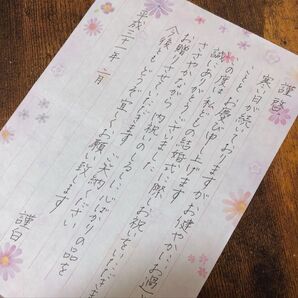 謹啓
寒い日が続いておりますが お健やかにお過
ことと お慶び申し上げます
この度は 私どもの結婚式に際し お祝いをいただきま
誠にありがとうございます
ささやかながら 内祝いのしるしに 心ばかりの品を
お贈りさせていただきました ご笑納ください
今後とも どうぞ宜しくお願い致します
平成三十一年 二月
謹白